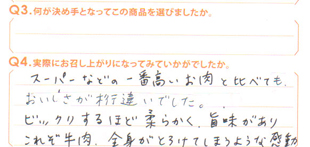 Q3.何が決め手となってこの商品を選びましたか。
Q4.実際にお召し上がりになってみていかがでしたか。
スーパーなどの一番高いお肉と比べても、
おいしさが桁違いでした。
ビックリするほど柔らかく、旨味があり
これぞ牛肉、全身がとろけてしまうような感動